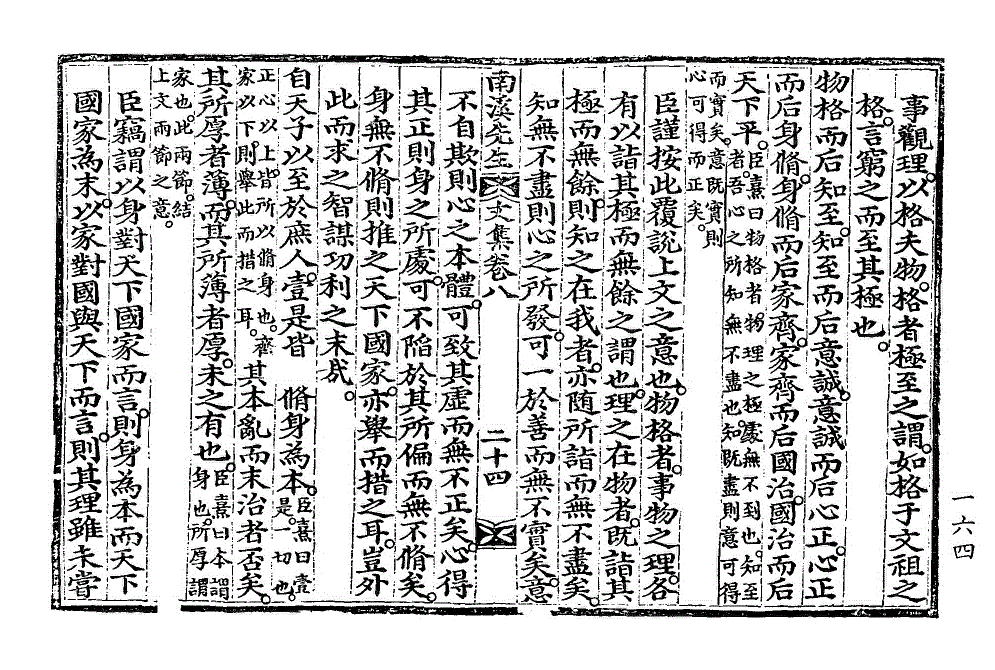 事觀理。以格夫物。格者極至之謂。如格于文祖之
格。言窮之而至其極也。
物格而后知至。知至而后意誠。意誠而后心正。心正
而后身脩。身脩而后家齊。家齊而后國治。國治而后
天下平。臣熹曰物格者物理之極處無不到也。知至
者。吾心之所知無不盡也。知既盡則意可得
而實矣。意既實則
心可得而正矣。
臣謹按此覆說上文之意也。物格者。事物之理。各
有以詣其極而無餘之謂也。理之在物者。既詣其
極而無餘。則知之在我者。亦随所詣而無不盡矣。
知無不盡則心之所發。可一於善而無不實矣。意
南溪先生文集卷八
二十四
不自欺則心之本體。可致其虛而無不正矣。心得
其正則身之所處。可不陷於其所偏而無不脩矣。
身無不脩則推之天下國家。亦舉而措之耳。豈外
此而求之智謀功利之末哉。
自天子以至於庶人。壹是皆脩身為本。臣熹曰壹
是。一切也。
正心以上。皆所以脩身也。齊
家以下。則舉此而措之耳。
其本亂而末治者否矣。
其所厚者薄。而其所薄者厚。未之有也。臣熹曰本謂
身也。所厚謂
家也。此兩節。結
上文兩節之意。
臣竊謂以身對天下國家而言。則身為本而天下
國家為末。以家對國與天下而言。則其理雖未嘗
一六四